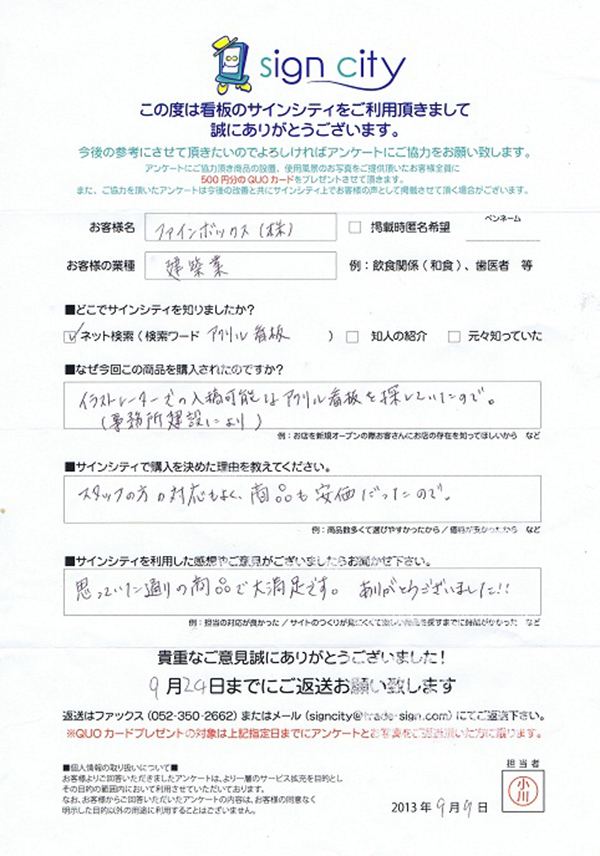 sign city
この度は看板のサインシティをご利用頂きまして
誠にありがとうございます。
今後の参考にさせて頂きたいのでよろしければアンケートにご協力をお願い致します。
アンケートにご協力頂き商品の設置、使用風景のお写真をご提供頂いたお客様全員に
500円分のQUOカードをプレゼントさせて頂きます。
また、ご協力を頂いたアンケートは今後の改善と共にサインシティ上でお客様の声として掲載させて頂く場合がございます。
お客様名 ファインボックス(株) □ 掲載時匿名希望 ペンネーム
お客様の業種 建築業 例:飲食関係(和食)、歯医者 等
■どこでサインシティを知りましたか?
☑ ネット検索(検索ワード アクリル看板 ) □ 知人の紹介 □ 元々知っていた
■なぜ今回この商品を購入されたのですか?
イラストレーターでの入稿可能なアクリル看板を探していたので。
(事務所建設により)
例:お店を新規オープンの際お客さんにお店の存在を知ってほしいから など
■サインシティで購入を決めた理由を教えてください。
スタッフの方の対応もよく、商品も安価だったので。
例:商品数多くて選びやすかったから / 価格が安かったから など
■サインシティを利用した感想やご意見がございましたらお聞かせ下さい。
思っていた通りの商品で大満足です。 ありがとうございました!!
例:担当の対応が良かった / サイトのつくりが見にくくて欲しい商品を探すまでに時間がかかった など
貴重なご意見誠にありがとうございました!
9月24日までにご返送お願い致します
返送はファックス(052-350-2662)またはメール(signcity@trade-sign.com)にてご返送下さい。
※QUOカードプレゼントの対象は上記指定日までにアンケートとお写真をご返送頂いた方に限ります。
■個人情報の取り扱いについて■
お客様よりご回答いただきましたアンケートは、より一層のサービス拡充を目的とし
その目的の範囲内において利用させていただいております。
なお、お客様からご回答いただいたアンケートの内容は、お客様の同意なく
明示した目的以外の用途に利用することはございません。
担当者
小川
2013年9月9日